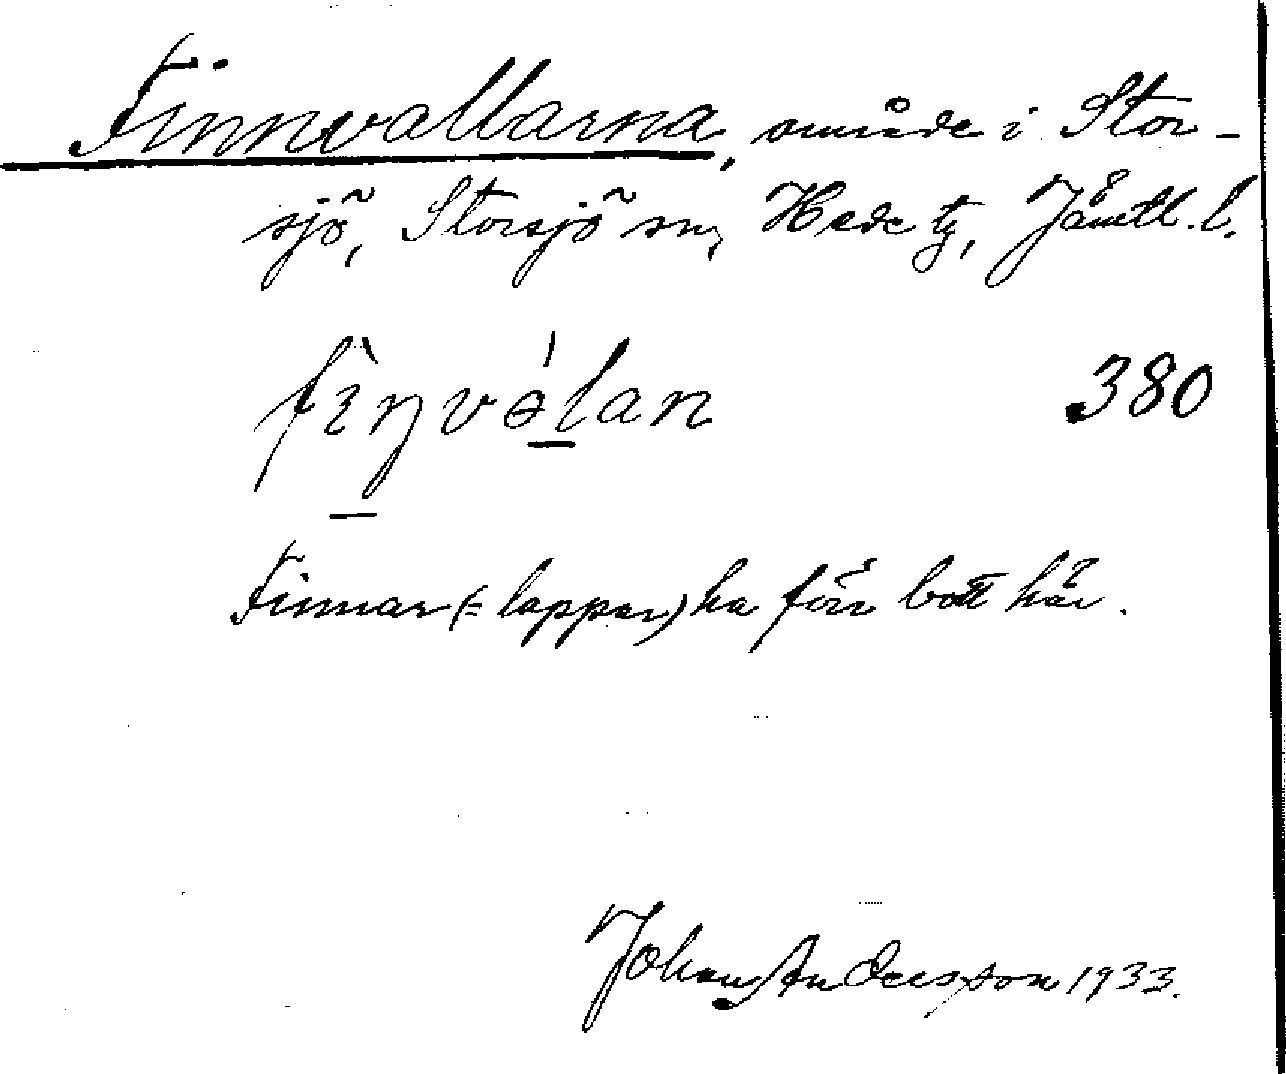 Finnvallarna, område i Stor-
sjö, Storsjö sn, Hede tg, Jämtl. l.
fìŋvə́lan 380
Finnar (= lappar) ha förr bott här.
Johan Andersson 1933.